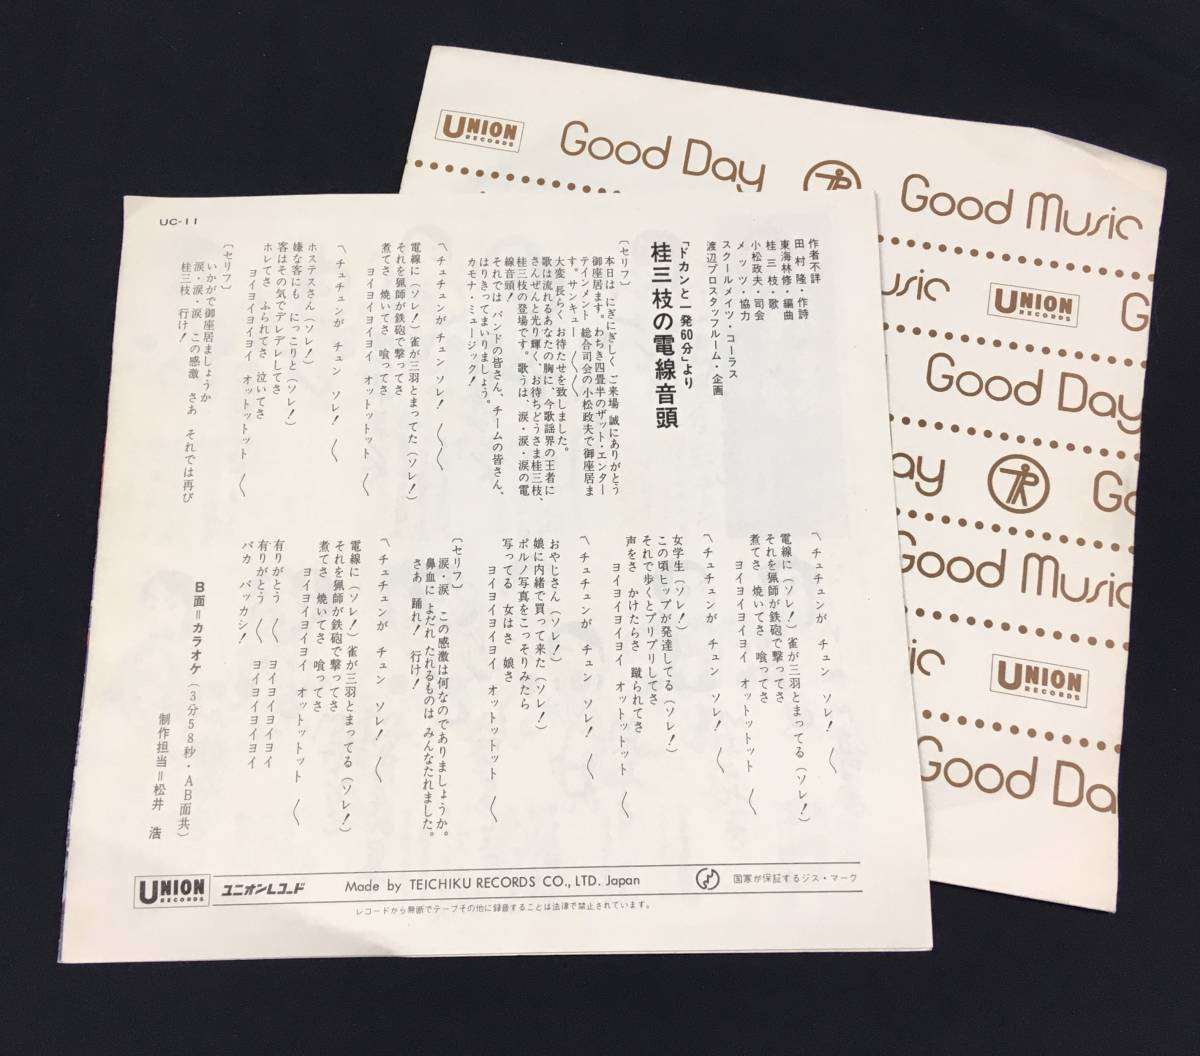 UC-11
「ドカンと一発60分」より
桂三枝の電線音頭
作者不詳
田村隆・作詩
東海林修・編曲
桂三枝・歌
小松政夫・司会
メッツ・協力
スクールメイツ・コーラス
渡辺プロスタッフルーム・企画
〔セリフ〕
本日は にぎにぎしく ご来場 誠にありがとう
御座居ます。わちき四畳半のザット・エンター
テインメント 総合司会の小松政夫で御座居ま
す。サンキュー 〱 〱
大変、長らく お待たせを致しました。
歌は流れるあなたの胸に、今歌謡界の王者に
さんぜんと光り輝く、お待ちどうさま桂三枝、
桂三枝の登場です。歌うは、涙・涙・涙の電
線音頭！
それでは バンドの皆さん、チームの皆さん、
はりきってまいりましょう。
カモナ・ミュージック！
〽チュチュンが チュン ソレ！ 〱 〱
電線に（ソレ！）雀が三羽とまってた（ソレ！）
それを猟師が鉄砲で撃ってさ
煮てさ 焼いてさ 喰ってさ
ヨイヨイヨイヨイ オットットット 〱
〽チュチュンが チュン ソレ！ 〱
ホステスさん（ソレ！）
嫌な客にも にっこりと（ソレ！）
客はその気でデレデレしてさ
ホレてさ ふられてさ 泣いてさ
ヨイヨイヨイヨイ オットットット 〱
〔セリフ〕
いかがで御座居ましょうか
涙・涙・涙 この感激 さあ それでは再び
桂三枝 行け！
〽チュチュンが チュン ソレ！ 〱
電線に（ソレ！）雀が三羽とまってる（ソレ！）
それを猟師が鉄砲で撃ってさ
煮てさ 焼いてさ 喰ってさ
ヨイヨイヨイヨイ オットットット 〱
〽チュチュンが チュン ソレ！ 〱
女学生（ソレ！）
この頃ヒップが発達してる（ソレ！）
それで歩くとプリプリしてさ
声をさ かけたらさ 蹴られてさ
ヨイヨイヨイヨイ オットットット 〱
〽チュチュンが チュン ソレ！ 〱
おやじさん（ソレ！）
娘に内緒で買って来た（ソレ！）
ポルノ写真をこっそりみたら
写ってる 女はさ 娘さ
ヨイヨイヨイヨイ オットットット 〱
〔セリフ〕
涙・涙 この感激は何なのでありましょうか。
鼻血に よだれ たれるものは みんなたれました。
さあ 踊れ！ 行け！
〽チュチュンが チュン ソレ！ 〱
電線に（ソレ！）雀が三羽とまってる（ソレ！）
それを猟師が鉄砲で撃ってさ
煮てさ 焼いてさ 喰ってさ
ヨイヨイヨイヨイ オットットット 〱
有りがとう 〱 ヨイヨイヨイヨイ
有りがとう 〱 ヨイヨイヨイヨイ
バカ バッカシ！
B面＝カラオケ（3分58秒・AB面共）
制作担当＝松井 浩
UNION
RECORDS
ユニオンレコード
Made by TEICHIKU RECORDS CO., LTD. Japan
国家が保証するジス・マーク
レコードから無断でテープその他に録音することは法律で禁止されています。
UNION
RECORDS
Good Day
Good Music
usic
UNION
RECORDS
Good Day
Day
Go
Good Music
usic
UNION
RECORDS
Good Da